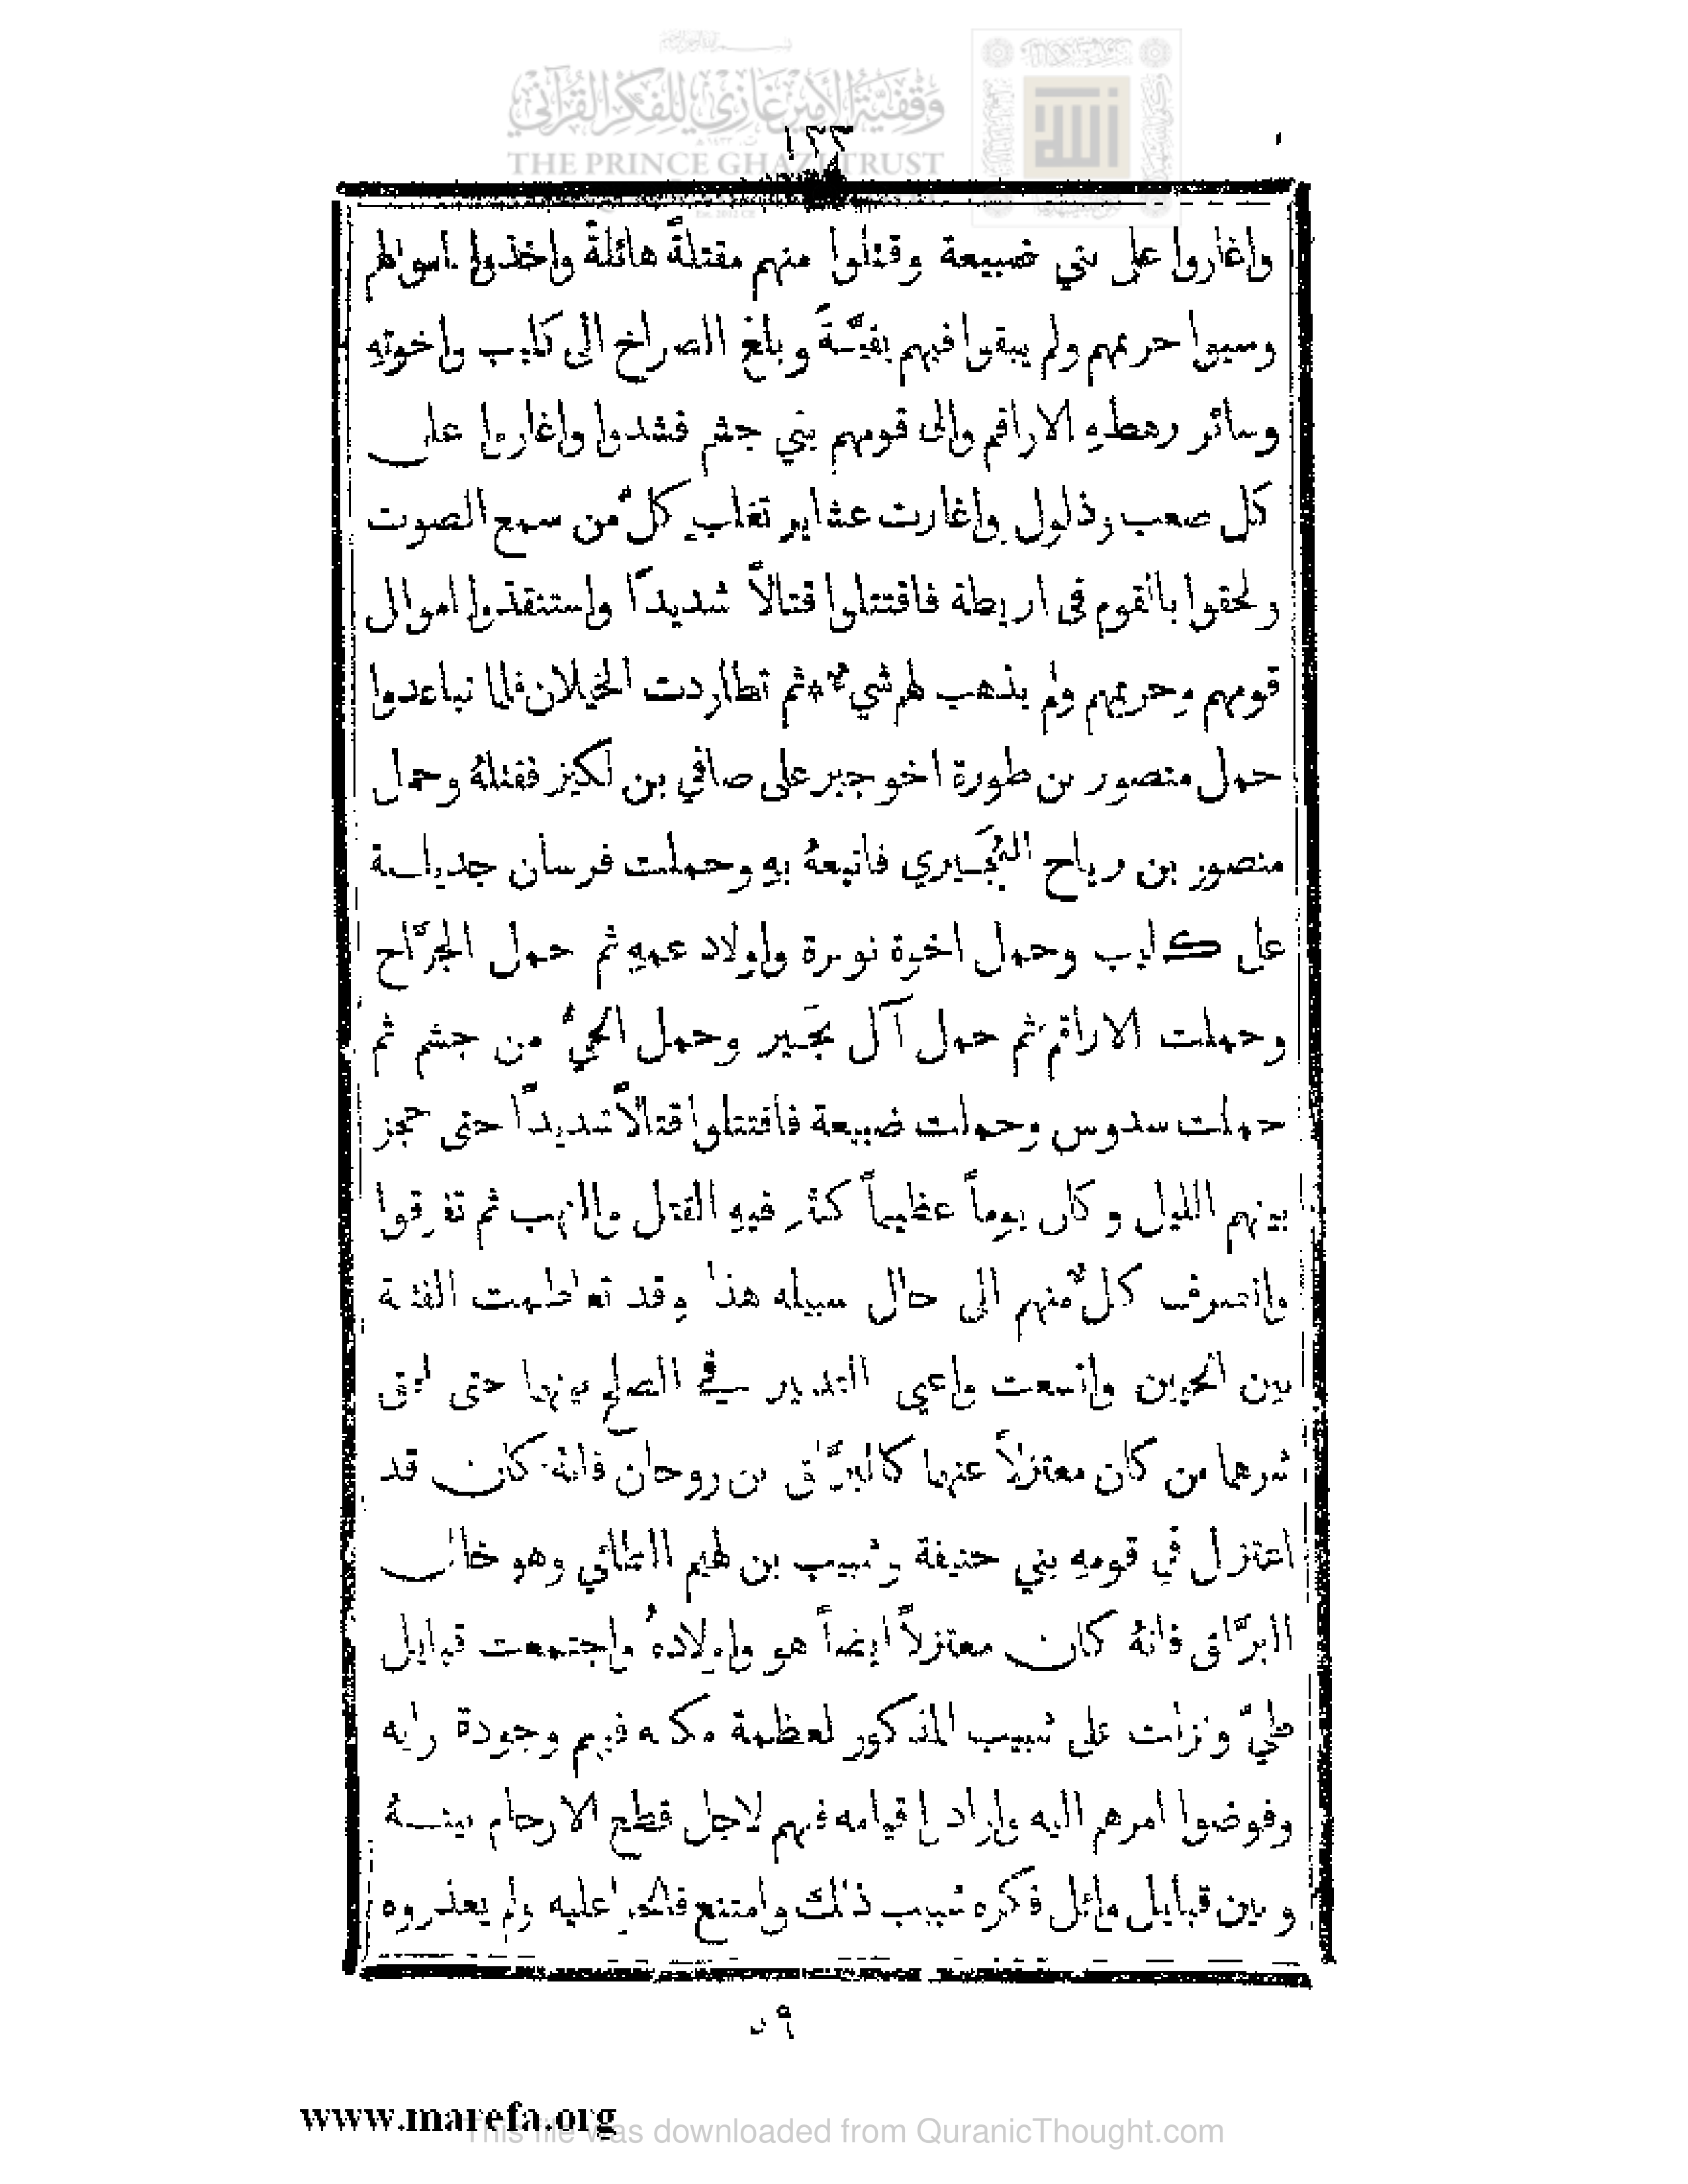 وقفية الأمير غازي للفكر القرآني
THE PRINCE GHAZI TRUST
١٢٣
واغاروا على بني ضبيعة وقتلوا منهم مقتلةً هائلةً واخذوا اموالهم
وسبوا حريمهم ولم يبقوا فيهم بقيَّةً وبلغ الصراخ الى كليب واخوتهِ
وسائر رهطهِ الاراقم والى قومهم بني جشم فشدوا واغاروا على
كل صعب وذلول واغارت عشاير تغلب كلٌ من سمع الصوت
ولحقوا بالقوم في اريطة فاقتتلوا قتالاً شديداً واستنقذوا اموال
قومهم وحريمهم ولم يذهب لهم شيءٌ * ثم تطاردت الخيلان فلما تباعدوا
حمل منصور بن طورة اخو جبر على صافي بن لكيز فقتلهُ وحمل
منصور بن رياح البُجَيري فاتبعهُ بهِ وحملت فرسان جديلة
على كليب وحمل اخوة نويرة واولاد عمهِ ثم حمل الجرَّاح
وحملت الاراقم ثم حمل آل بجَير وحمل الحيُّ من جشم ثم
حملت سدوس وحملت ضبيعة فاقتتلوا قتالاً شديداً حتى حجز
بينهم الليل وكان يوماً عظيماً كثر فيهِ القتل والنهب ثم تفرقوا
وانصرف كلٌ منهم الى حال سبيله هذا وقد تعاظمت الفتنة
بين الحيين واتسعت واعيى التدبير في الصلح بينهما حتى
شرهما من كان معتزلاً عنهما كالبرَّاق بن روحان فانهُ كان قد
اعتزل في قومهِ بني حنيفة وشبيب بن لهيم الطائي وهو خال
البرَّاق فانهُ كان معتزلاً ايضاً هو واولادهُ واجتمعت قبايل
طيّ ونزلت على شبيب المذكور لعظمة مكانه فيهم وجودة رايه
وفوضوا امرهم اليه وارادوا قيامه فيهم لاجل قطع الارحام بينهُ
وبين قبايل وائل فكره شبيب ذلك وامتنع فالحوا عليه ولم يعذروه
www.marefa.org
This file was downloaded from QuranicThought.com